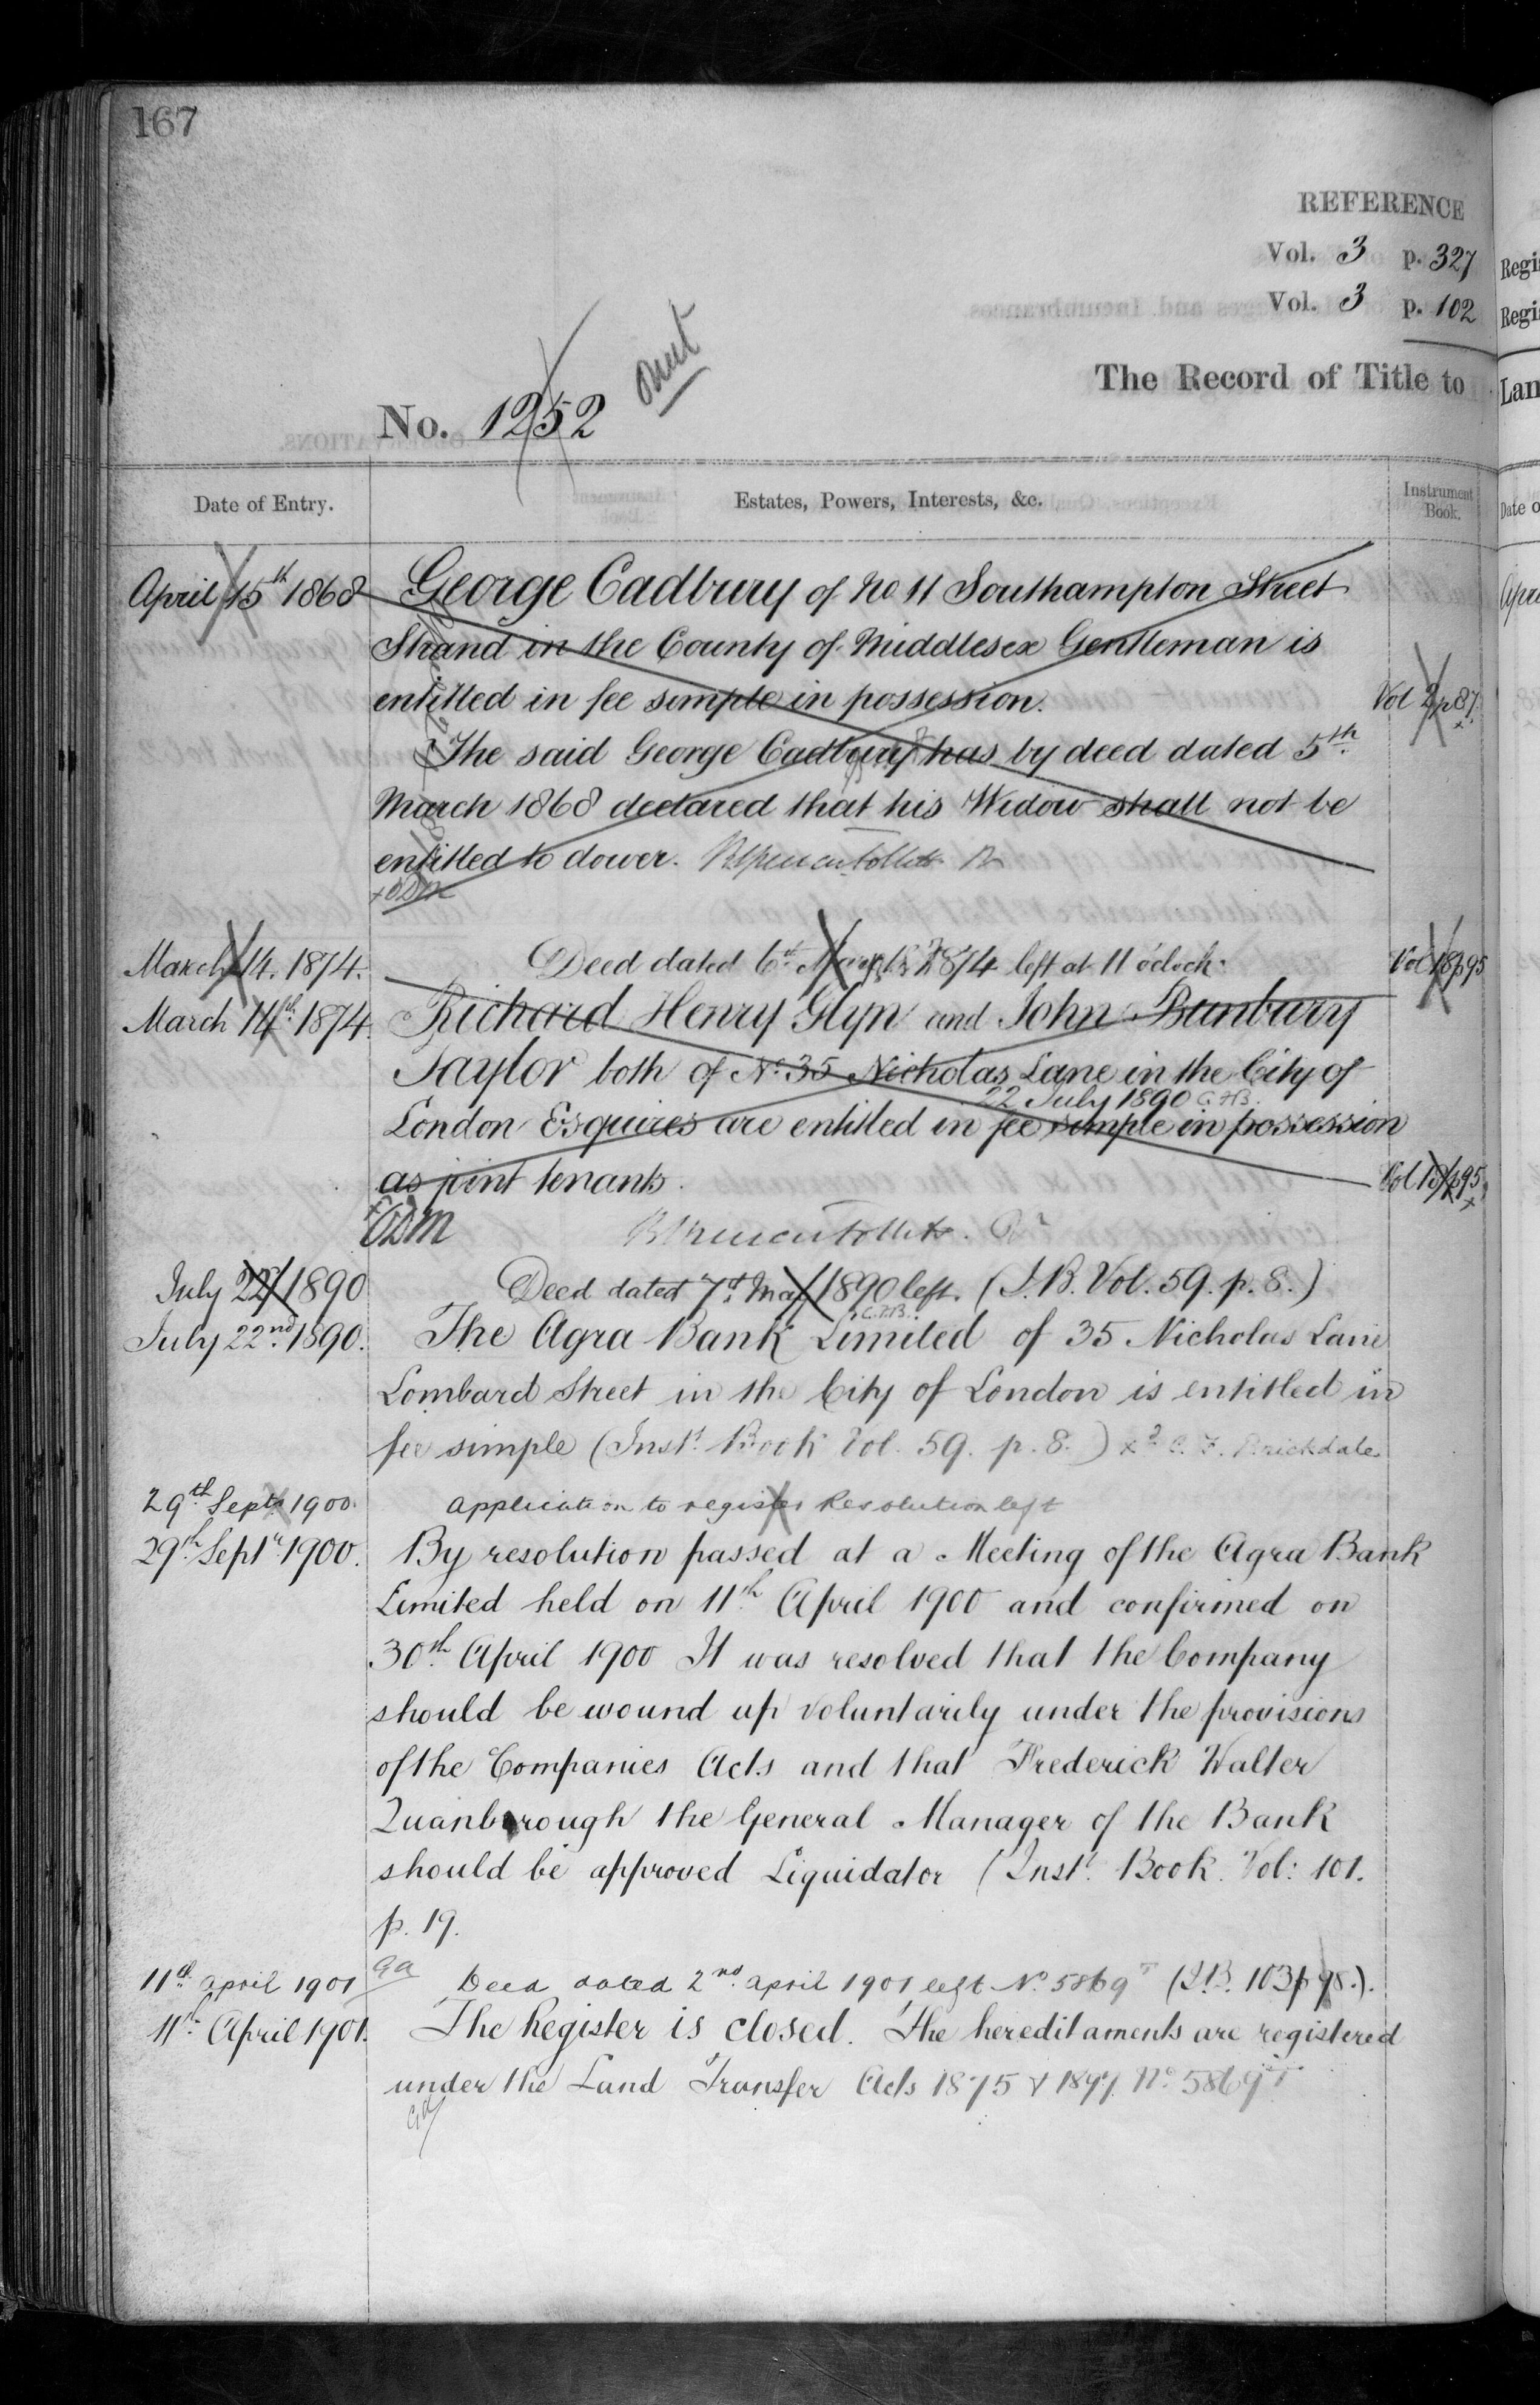 167
REFERENCE
Vol. 3 p. 327
Vol. 3 p. 102
The Record of Title to
No. 1252 omit
Date of Entry. Estates, Powers, Interests, &c. Instrument Book.
April 15th 1868 George Cadbury of No 11 Southampton Street
Strand in the County of Middlesex Gentleman is
entitled in fee simple in possession. Vol 2 p 87
The said George Cadbury has by deed dated 5th
March 1868 declared that his Widow shall not be
entitled to dower.
March 14. 1874. Deed dated 6th 1874 left at 11 o'clock. Vol 18 p 95
March 14th 1874. Richard Henry Glyn and John Bunbury
Taylor both of No. 35 Nicholas Lane in the City of
22 July 1890 C.F.B.
London Esquires are entitled in fee simple in possession
as joint tenants. Vol 18 p 95
July 22/1890 Deed dated 7th May 1890 left. (I.B. Vol. 59. p. 8.)
C.F.B.
July 22nd 1890. The Agra Bank Limited of 35 Nicholas Lane
Lombard Street in the City of London is entitled in
fee simple (Inst. Book Vol. 59. p. 8.) C. F. Brickdale
29th Sept 1900. Application to register Resolution left
29th Septr 1900. By resolution passed at a Meeting of the Agra Bank
Limited held on 11th April 1900 and confirmed on
30th April 1900 It was resolved that the Company
should be wound up voluntarily under the provisions
of the Companies Acts and that Frederick Walter
Quanborough the General Manager of the Bank
should be approved Liquidator (Inst. Book. Vol: 101.
p. 19.
11th April 1901 Deed dated 2nd April 1901 left No. 5869 (I.B. 103 p 98.).
11th April 1901. The Register is closed. The hereditaments are registered
under the Land Transfer Acts 1875 & 1897. No. 5869
Regi
Regi
Lan
Date o